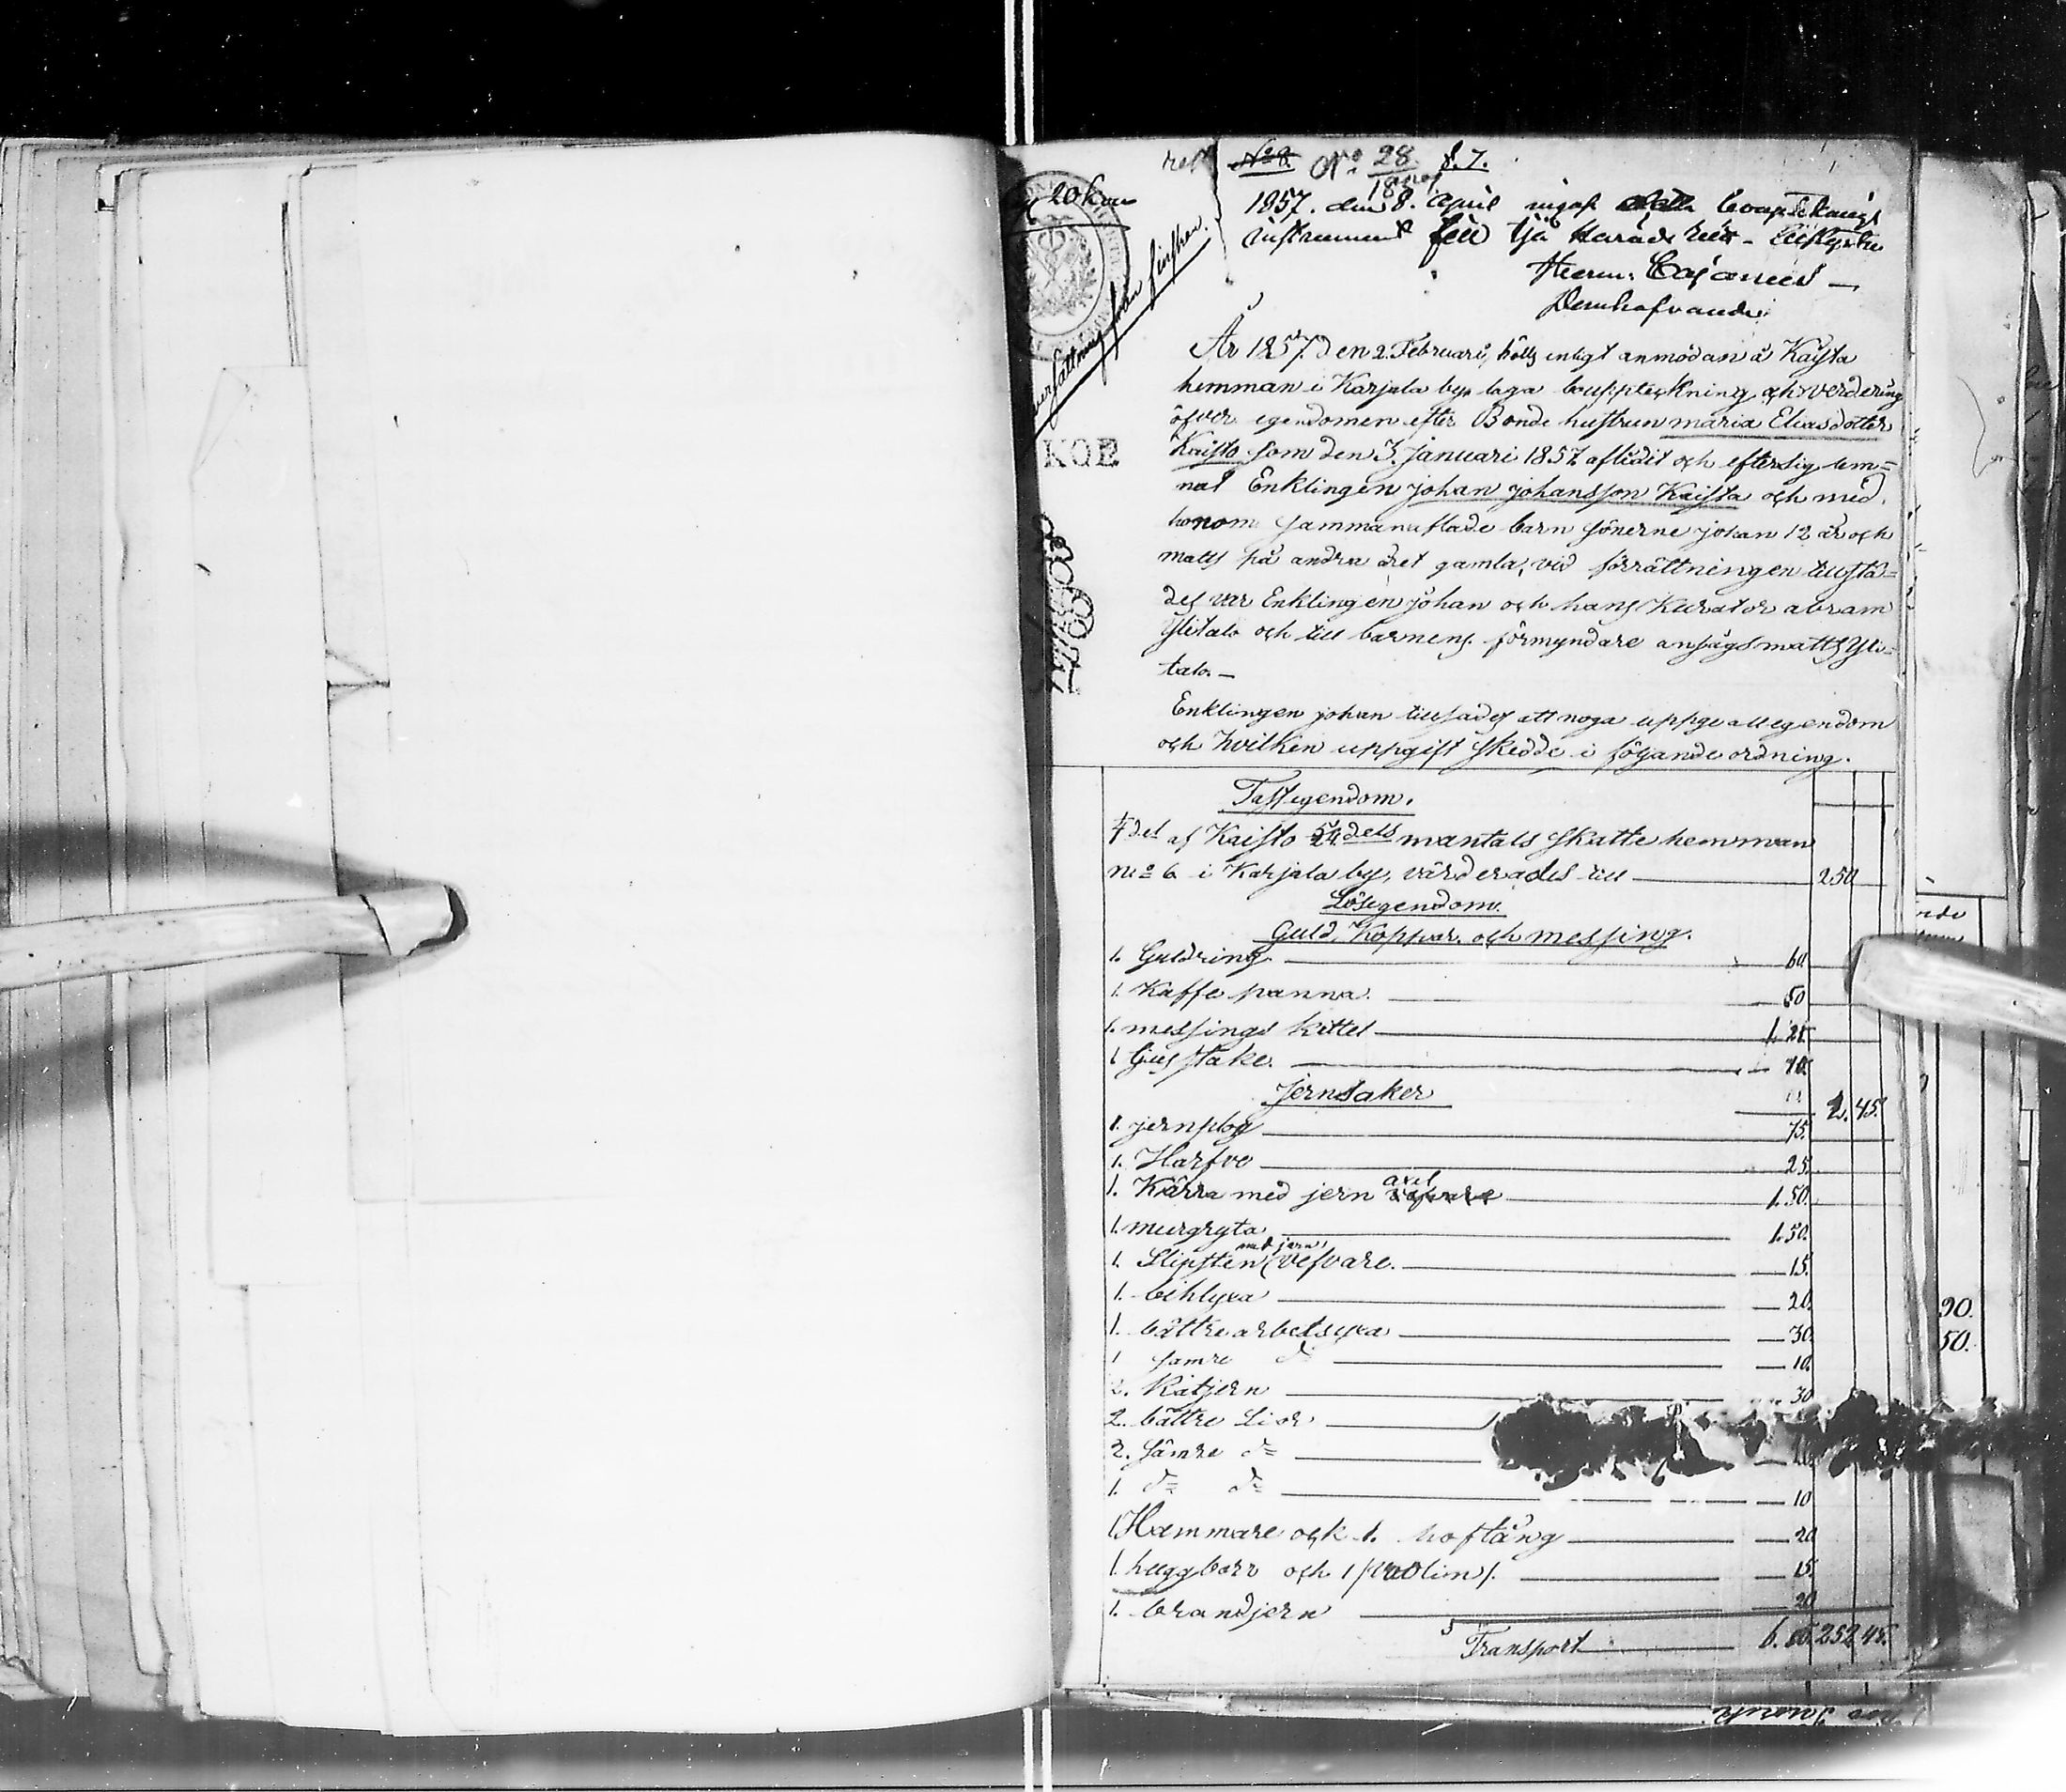 No 8. No 28. S. 7.
20 kop
1857. den 8. April ingaf
instrument
Cajanus —
KOP.
År 1857. den 2. Februari, hölls enligt anmodan å Kaista
hemman i Karjala by, laga bouppteckning och verdering
öfver egendomen efter Bonde hustrun maria Eliasdotter
Kaisto som den 3. Januari 1857 aflidit och efter sig lem=
nat Enklingen johan johansson Kaista och med
honom sammanaflade barn sönerne johan 12 år och
matts på andra året gamla, vid förrättningen tillstä=
des var Enklingen johan och hans Kurator abram
Ylitalo och till barnens förmyndare ansågs matts Yli=
talo. —
Enklingen johan tillsades att noga uppge all egendom
och hvilken uppgift skedde i följande ordning.
Fastegendom.
4 del af Kaisto dels mantals skatte hemman
no 6 i Karjala by, värderades till — 250
Lösegendom.
Guld, Koppar och messing.
1. Guldring — 60
1. Kaffe panna. — 50
1. messings kittel — 1. 25
1 ljusstake. — 10.
2. 45.
Jernsaker
1. jernplog — 75.
1. Harfve — 25.
1. Kärra med jern axel — 1. 50.
1. murgryta — 1. 50.
1. Slipsten med jern vefvare. — 15.
1. bihlyxa — 20.
1. bättre arbetsyxa — 30.
1 samre do — 10.
2. Råtjern — 30
2. bättre Lior —
2. sämre do —
1. do do — 10
1 Hammare och 1. hoftång — 20
1. huggborr och 1 — 15.
1. brandjern — 20
Transport — 6. 252 45.
90.
50.